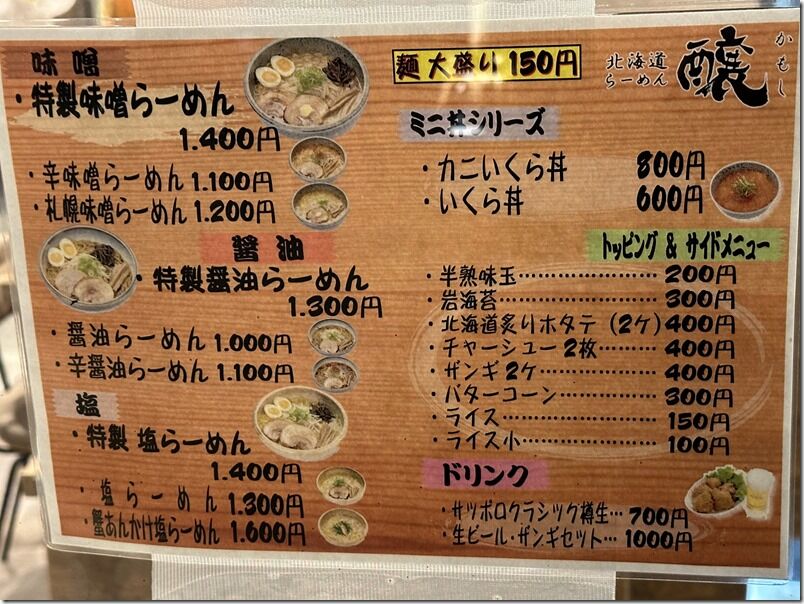 味噌
・特製味噌らーめん
1.400円
・辛味噌らーめん 1.100円
・札幌味噌らーめん 1.200円
醤油
・特製醤油らーめん
1.300円
・醤油らーめん 1.000円
・辛醤油らーめん 1.100円
塩
・特製 塩らーめん
1.400円
・塩らーめん 1.300円
・蟹あんかけ塩らーめん 1.600円
麺 大盛り 150円
北海道
らーめん
醸
かもし
ミニ丼シリーズ
・カニいくら丼 800円
・いくら丼 600円
トッピング & サイドメニュー
・半熟味玉……………… 200円
・岩海苔……………… 300円
・北海道炙りホタテ（2ケ）400円
・チャーシュー 2枚……… 400円
・ザンギ 2ケ……………… 400円
・バターコーン………… 300円
・ライス……………… 150円
・ライス小……………… 100円
ドリンク
・サッポロクラシック樽生… 700円
・生ビール・ザンギセット… 1000円